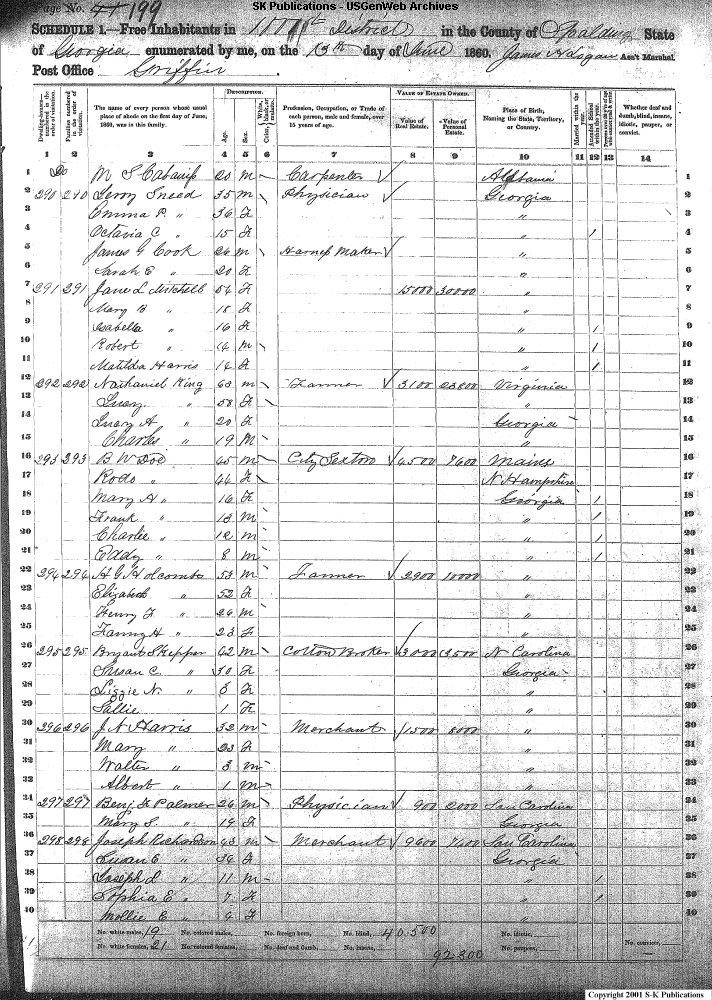 SK Publications - USGenWeb Archives
Page No. 199
SCHEDULE 1.—Free Inhabitants in District in the County of Spalding State
of Georgia enumerated by me, on the 13th day of June 1860. James H Logan Ass't Marshal.
Post Office Griffin.
Dwelling-houses—numbered in the order of visitation. Families numbered in the order of visitation. The name of every person whose usual place of abode on the first day of June, 1860, was in this family. DESCRIPTION. Age. Sex. Color, White, black, or mulatto. Profession, Occupation, or Trade of each person, male and female, over 15 years of age. VALUE OF ESTATE OWNED. Value of Real Estate. Value of Personal Estate. Place of Birth, Naming the State, Territory, or Country. Married within the year. Attended School within the year. Whether deaf and dumb, blind, insane, idiotic, pauper, or convict.
1 2 3 4 5 6 7 8 9 10 11 12 13 14
1 M S Cabaniss 20 m Carpenter Alabama 1
2 290 290 Leroy Sneed 35 m Physician Georgia 2
3 Emma P. " 36 F " 3
4 Octavia C " 15 F " 1 4
5 James G Cook 26 m Harness Maker " 5
6 Sarah E " 20 F " 6
7 291 291 Jane L Mitchell 54 F 15000 30000 " 7
8 Mary B " 18 F " 8
9 Isabella " 16 F " 1 9
10 Robert " 14 m " 1 10
11 Matilda Harris 14 F " 1 11
12 292 292 Nathaniel King 63 m Farmer 3100 23800 Virginia 12
13 Lucy " 58 F " 13
14 Lucy A " 20 F Georgia 14
15 Charles " 19 M " 15
16 293 293 B W Doe 45 m City Sexton 4500 7600 Maine 16
17 " 44 F N Hampshire 17
18 Mary A " 16 F Georgia 1 18
19 Frank " 13 m " 1 19
20 Charlie " 12 m " 1 20
21 Eddy " 8 m " 1 21
22 294 294 H G Holcombe 53 m Farmer 2900 10000 " 22
23 Elizabeth " 52 F " 23
24 Henry F " 26 m " 24
25 Fanny H " 23 F " 25
26 295 295 Bryant Skipper 42 m Cotton Broker 3000 3500 N Carolina 26
27 Susan C. " 30 F Georgia 27
28 Lizzie N. " F " 28
29 Sallie 1 F " 29
30 296 296 J. N Harris 32 m Merchant 1500 8000 " 30
31 Mary " 23 F " 31
32 Walter " 3 m " 32
33 Albert " 1 m " 33
34 297 297 Benj F Palmer 26 m Physician 900 2000 Sou Carolina 34
35 Mary S. " 19 F Georgia 35
36 298 298 Joseph Richardson 43 m Merchant 9600 7400 Sou Carolina 36
37 Susan E " F Georgia
38 Joseph L " 11 m " 1 38
39 Sophia E " 7 F " 1 39
40 Mollie E " F " 40
No. white males, 19 No. colored males, No. foreign born, No. blind, 40.500 No. idiotic,
No. white females, 21 No. colored females, No. deaf and dumb, No. insane, No. paupers, No. convicts,
92.800
Copyright 2001 S-K Publications